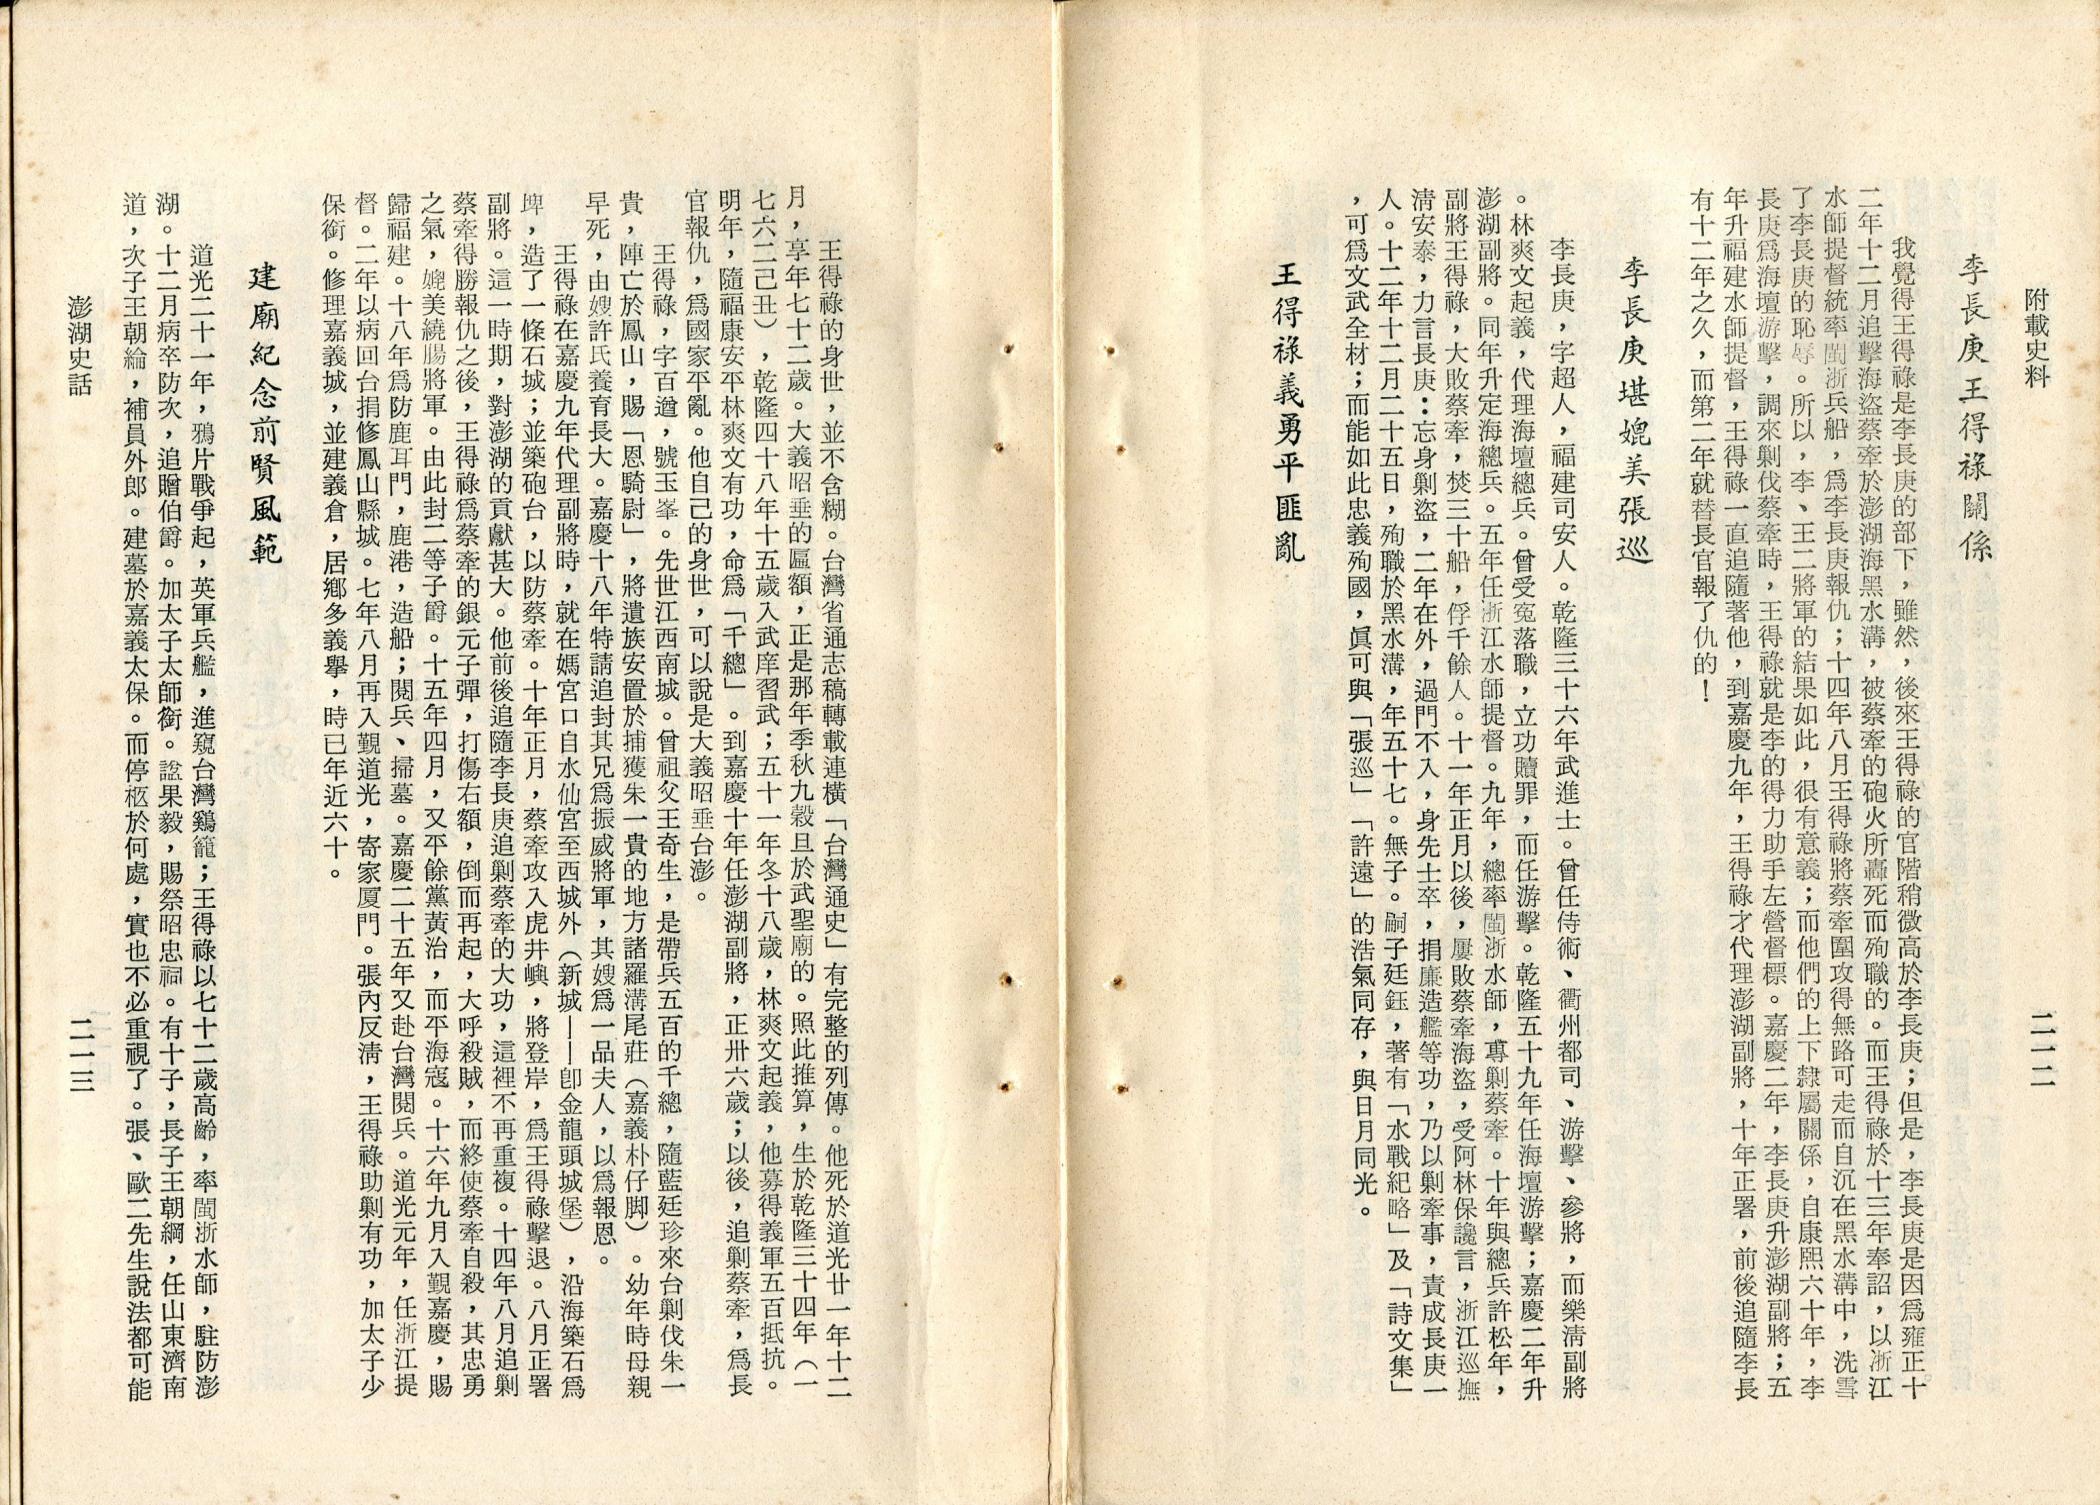 附載史料
二一二
李長庚王得祿關係
我覺得王得祿是李長庚的部下，雖然，後來王得祿的官階稍微高於李長庚；但是，李長庚是因爲雍正十
二年十二月追擊海盜蔡牽於澎湖海黑水溝，被蔡牽的砲火所轟死而殉職的。而王得祿於十三年奉詔，以浙江
水師提督統率閩浙兵船，爲李長庚報仇；十四年八月王得祿將蔡牽圍攻得無路可走而自沉在黑水溝中，洗雪
了李長庚的恥辱。所以，李、王二將軍的結果如此，很有意義；而他們的上下隸屬關係，自康熙六十年，李
長庚爲海壇游擊，調來剿伐蔡牽時，王得祿就是李的得力助手左營督標。嘉慶二年，李長庚升澎湖副將；五
年升福建水師提督，王得祿一直追隨著他，到嘉慶九年，王得祿才代理澎湖副將，十年正署，前後追隨李長
有十二年之久，而第二年就替長官報了仇的！
李長庚堪媲美張巡
李長庚，字超人，福建司安人。乾隆三十六年武進士。曾任侍術、衢州都司、游擊、參將，而樂淸副將
。林爽文起義，代理海壇總兵。曾受寃落職，立功贖罪，而任游擊。乾隆五十九年任海壇游擊；嘉慶二年升
澎湖副將。同年升定海總兵。五年任浙江水師提督。九年，總率閩浙水師，專剿蔡牽。十年與總兵許松年，
副將王得祿，大敗蔡牽，焚三十船，俘千餘人。十一年正月以後，屢敗蔡牽海盜，受阿林保讒言，浙江巡撫
淸安泰，力言長庚：忘身剿盜，二年在外，過門不入，身先士卒，捐廉造艦等功，乃以剿牽事，責成長庚一
人。十二年十二月二十五日，殉職於黑水溝，年五十七。無子。嗣子廷鈺，著有「水戰紀略」及「詩文集」
，可爲文武全材；而能如此忠義殉國，眞可與「張巡」「許遠」的浩氣同存，與日月同光。
王得祿義勇平匪亂
王得祿的身世，並不含糊。台灣省通志稿轉載連橫「台灣通史」有完整的列傳。他死於道光廿一年十二
月，享年七十二歲。大義昭垂的匾額，正是那年季秋九穀旦於武聖廟的。照此推算，生於乾隆三十四年（一
七六二己丑），乾隆四十八年十五歲入武庠習武；五十一年冬十八歲，林爽文起義，他募得義軍五百抵抗。
明年，隨福康安平林爽文有功，命爲「千總」。到嘉慶十年任澎湖副將，正卅六歲；以後，追剿蔡牽，爲長
官報仇，爲國家平亂。他自己的身世，可以說是大義昭垂台澎。
王得祿，字百遒，號玉峯。先世江西南城。曾祖父王奇生，是帶兵五百的千總，隨藍廷珍來台剿伐朱一
貴，陣亡於鳳山，賜「恩騎尉」，將遺族安置於捕獲朱一貴的地方諸羅溝尾莊（嘉義朴仔脚）。幼年時母親
早死，由嫂許氏養育長大。嘉慶十八年特請追封其兄爲振威將軍，其嫂爲一品夫人，以爲報恩。
王得祿在嘉慶九年代理副將時，就在媽宮口自水仙宮至西城外（新城——卽金龍頭城堡），沿海築石爲
埤，造了一條石城；並築砲台，以防蔡牽。十年正月，蔡牽攻入虎井嶼，將登岸，爲王得祿擊退。八月正署
副將。這一時期，對澎湖的貢獻甚大。他前後追隨李長庚追剿蔡牽的大功，這裡不再重複。十四年八月追剿
蔡牽得勝報仇之後，王得祿爲蔡牽的銀元子彈，打傷右額，倒而再起，大呼殺賊，而終使蔡牽自殺，其忠勇
之氣，媲美繞腸將軍。由此封二等子爵。十五年四月，又平餘黨黃治，而平海寇。十六年九月入覲嘉慶，賜
歸福建。十八年爲防鹿耳門，鹿港，造船；閱兵、掃墓。嘉慶二十五年又赴台灣閱兵。道光元年，任浙江提
督。二年以病回台捐修鳳山縣城。七年八月再入覲道光，寄家厦門。張內反淸，王得祿助剿有功，加太子少
保銜。修理嘉義城，並建義倉，居鄉多義擧，時已年近六十。
建廟紀念前賢風範
道光二十一年，鴉片戰爭起，英軍兵艦，進窺台灣鷄籠；王得祿以七十二歲高齡，率閩浙水師，駐防澎
湖。十二月病卒防次，追贈伯爵。加太子太師銜。諡果毅，賜祭昭忠祠。有十子，長子王朝綱，任山東濟南
道，次子王朝綸，補員外郎。建墓於嘉義太保。而停柩於何處，實也不必重視了。張、歐二先生說法都可能
澎湖史話
二一三